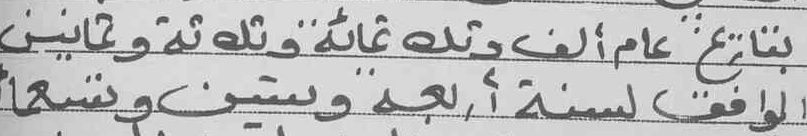 بتاريخ عام ألف وثلاثمائة وثلاثة وثمانين
الموافق لسنة أربعة وستين وتسعما